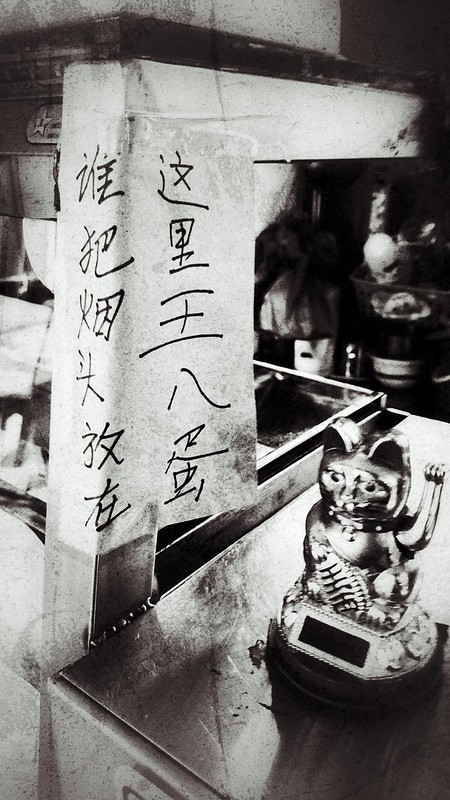 谁把烟头放在
这里王八蛋